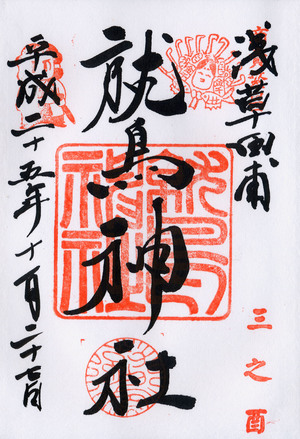 浅草田甫
鷲神社
三之酉
平成二十五年十一月二十七日
鷲神社